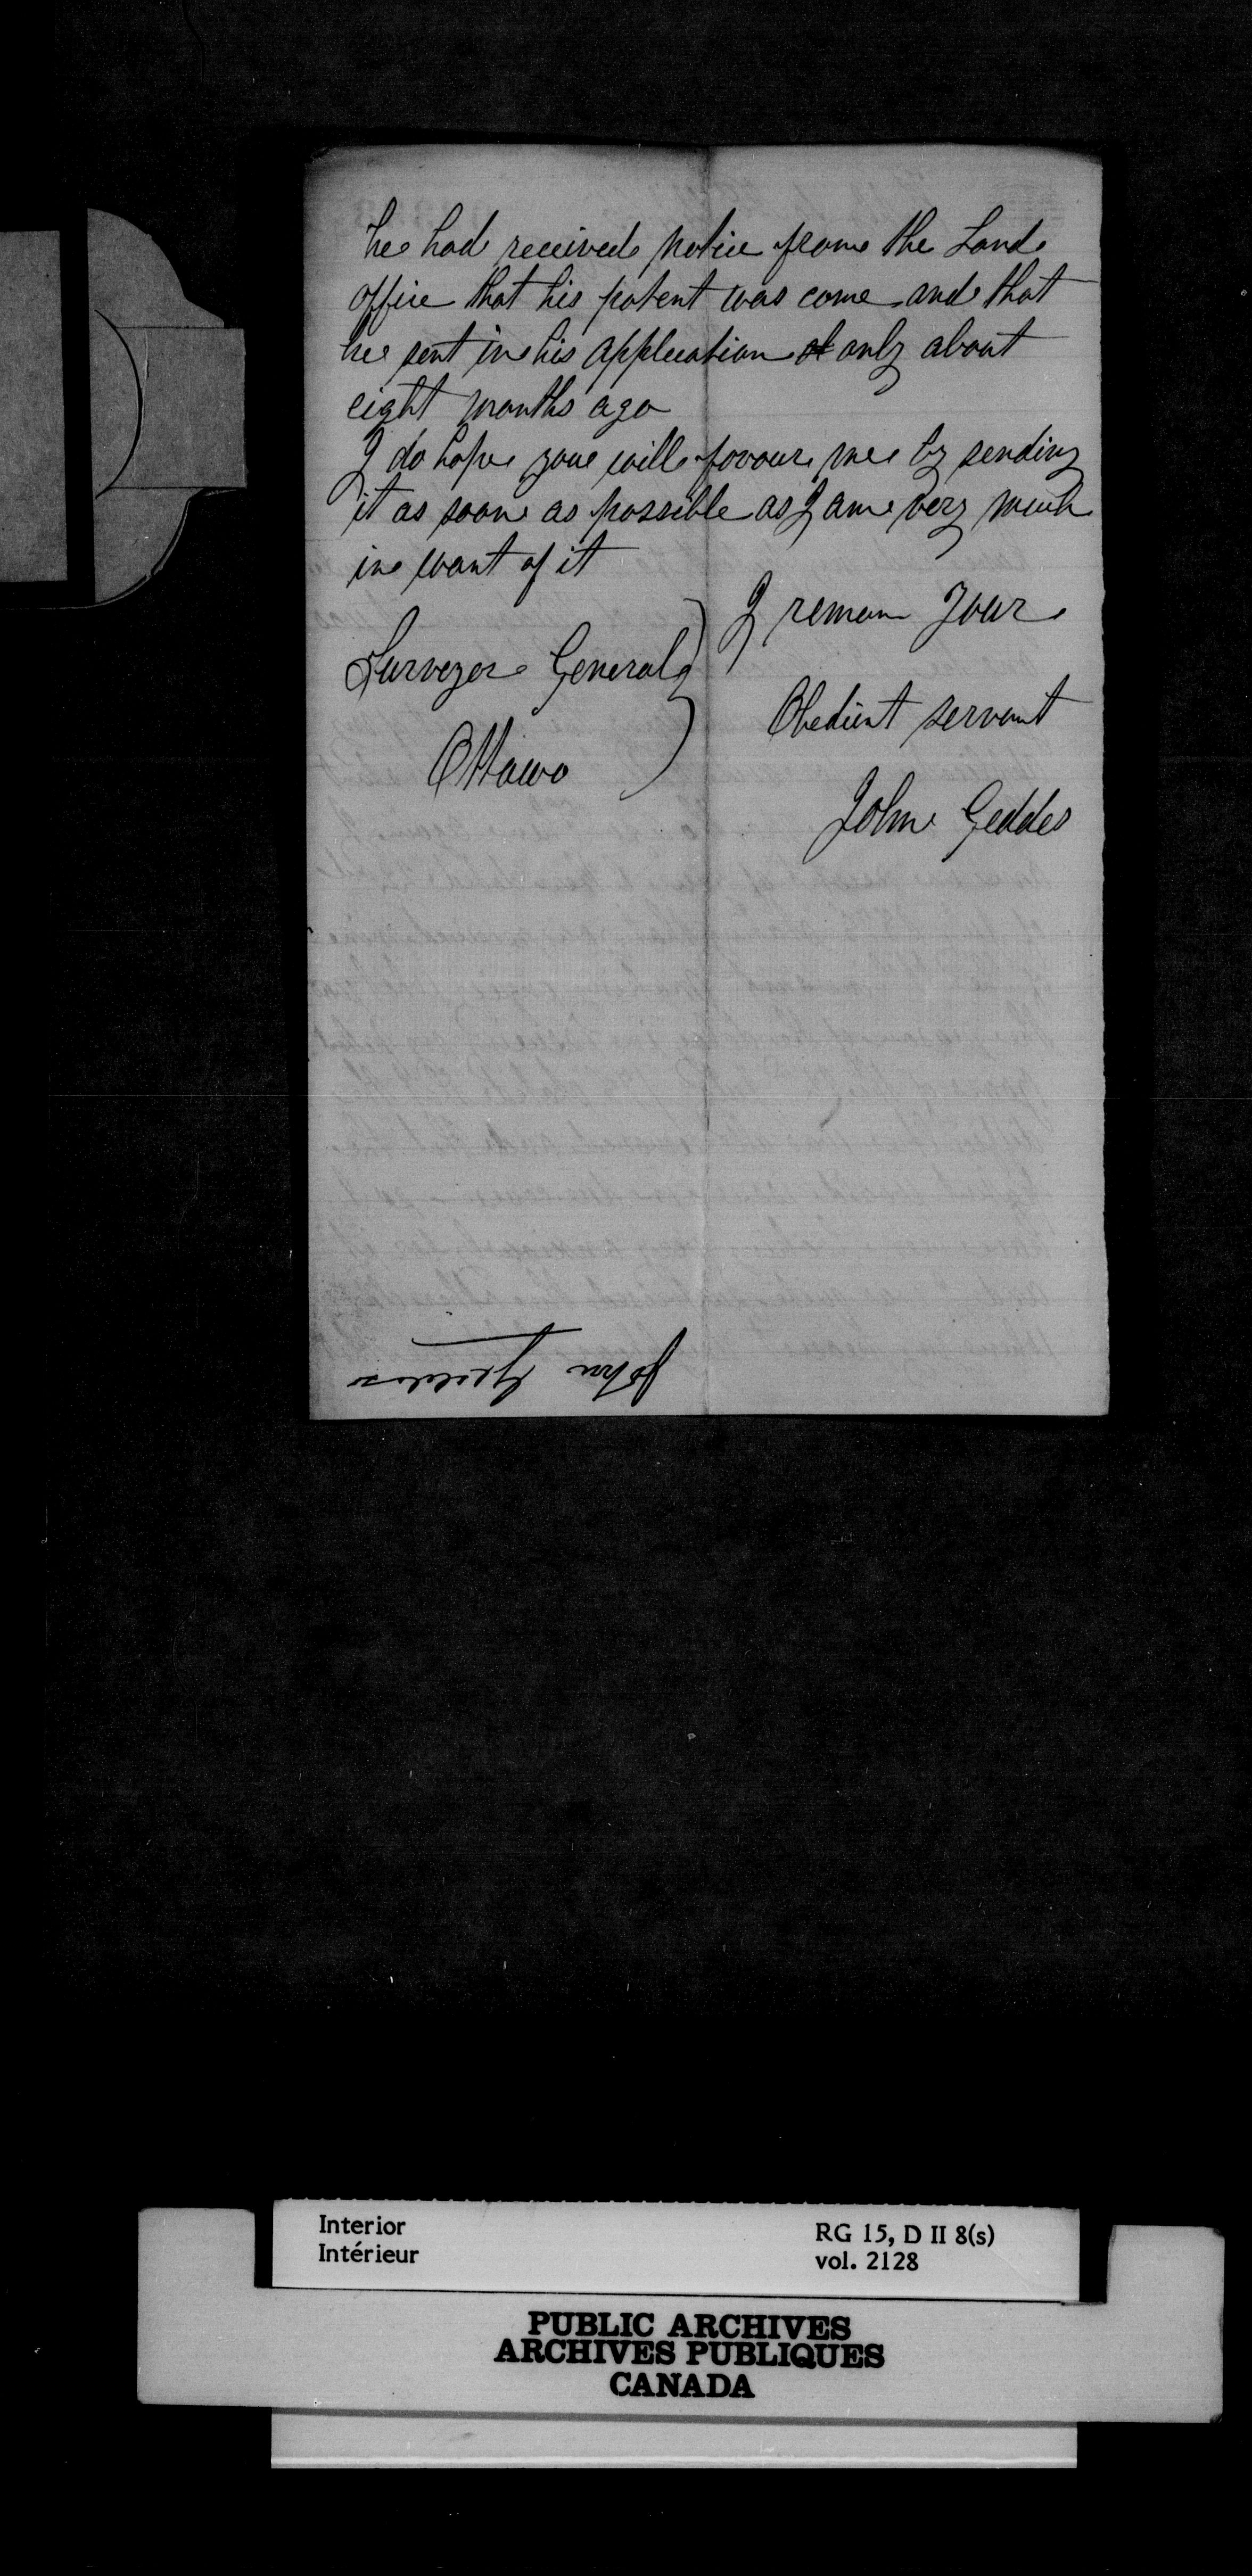 he had received notice from the Land
office that his patent was come and that
he sent in his application only about
eight months ago
I do hope you will favour me by sending
it as soon as possible as I am very much
in want of it
I remain Your
Surveyor General
Obedient servant
Ottawa
John Geddes
John Geddes
Interior
Intérieur
RG 15, D II 8(s)
vol. 2128
PUBLIC ARCHIVES
ARCHIVES PUBLIQUES
CANADA